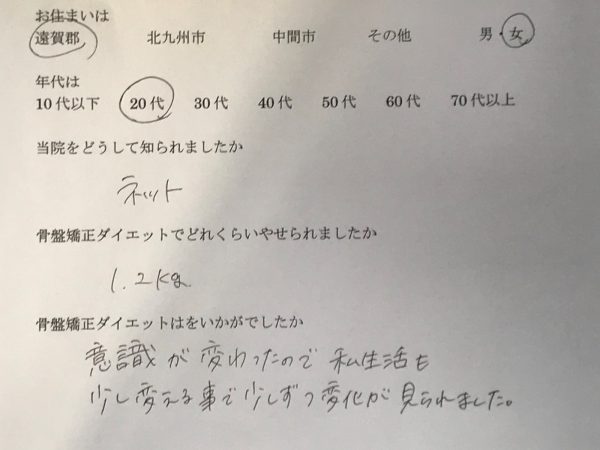 お住まいは
遠賀郡 北九州市 中間市 その他 男・女
年代は
10代以下 20代 30代 40代 50代 60代 70代以上
当院をどうして知られましたか
ネット
骨盤矯正ダイエットでどれくらいやせられましたか
1.2kg
骨盤矯正ダイエットはをいかがでしたか
意識が変わったので私生活も
少し変える事で少しずつ変化が見られました。